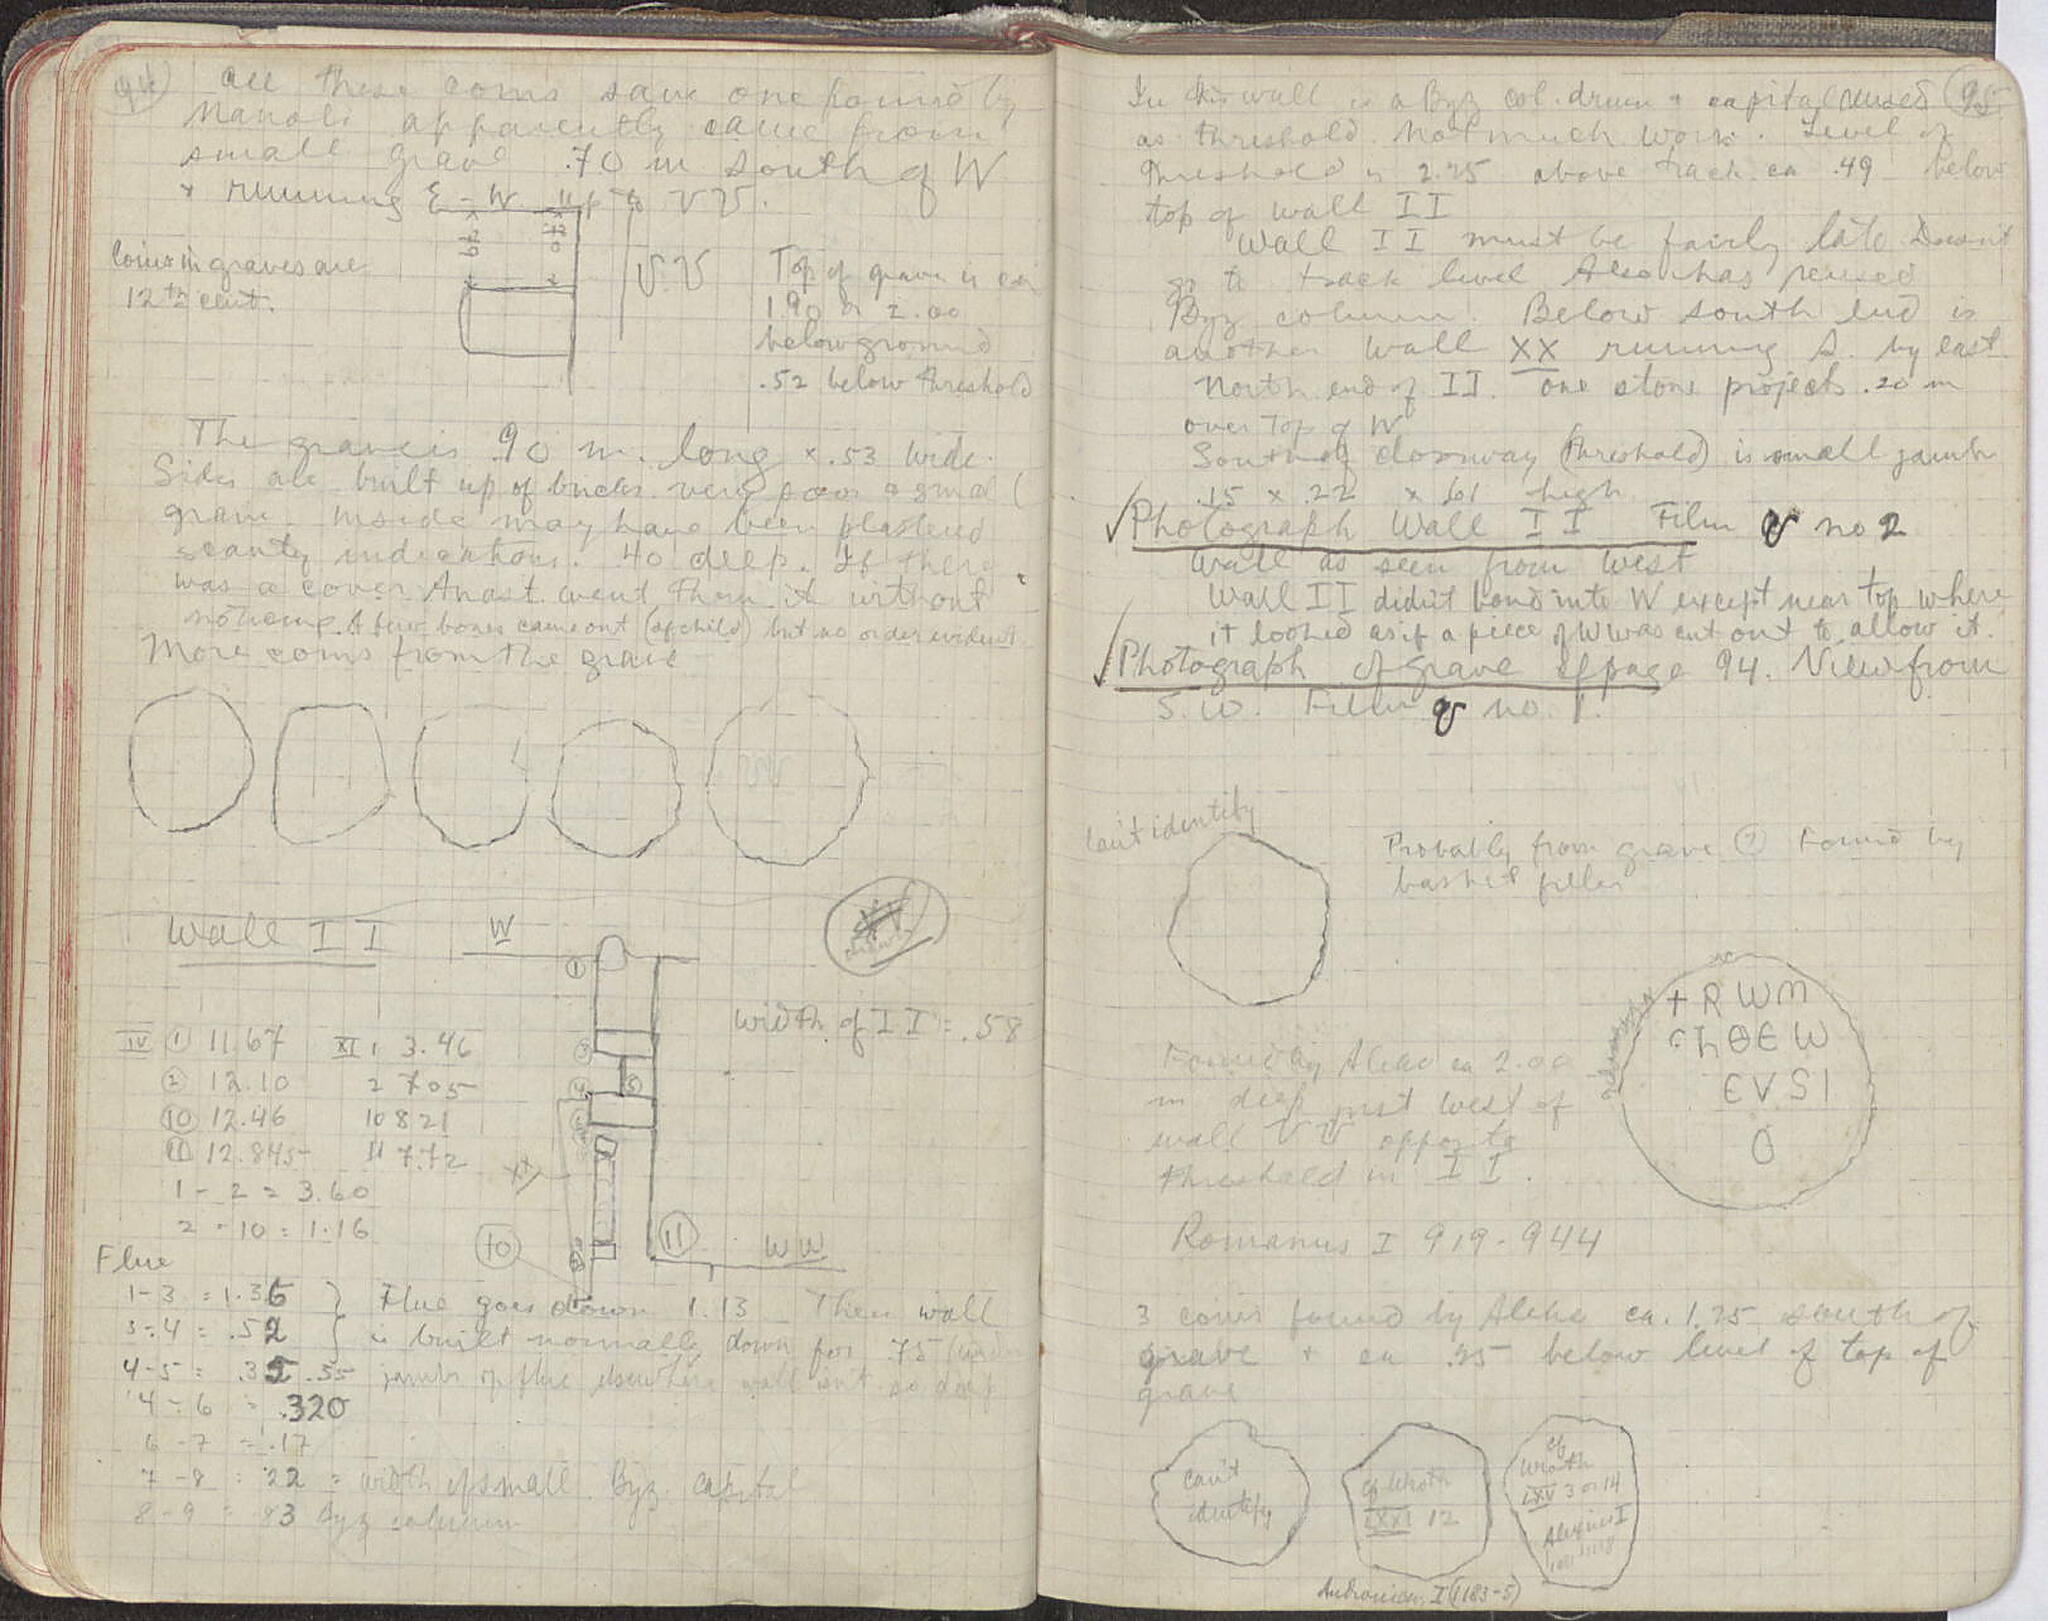 94
All these coins save one found by
Manoli apparently came from
small grave .70 m south of W
+ running E-W up to VV.
Coins in graves are
12th cent.
VV
Top of grave is ca
1.90 or 2.00
below ground
.52 below threshold
The grave is .90 m. long × .53 wide.
Sides are built up of bricks very poor & small
grave. Inside may have been plastered
scanty indications. .40 deep. If there
was a cover Anast. went thru it without
noticing. A few bones came out (of child) but no order evident
More coins from the grave
Wall II
W
width of II = .58
IV ① 11.67 XI 1 3.46
② 12.10 2 7.05
⑩ 12.46 10 8.21
⑪ 12.845 11 7.72
1 - 2 = 3.60
2 - 10 = 1.16
XX
10
11
WW
Flue
1-3 = 1.36
3-4 = .52
4-5 = .35
4-6 = .320
6-7 = .17
7-8 = .22 = width of small Byz. capital
8-9 = .83 Byz column
Flue goes down 1.13 Then wall
is built normally down for .75
jambs of flue elsewhere wall isn't so deep
95
In this wall is a Byz col. drum + capital reused
as threshold. Not much work. Level of
threshold is 2.25 above track ca .49 below
top of wall II
Wall II must be fairly late Doesn't
go to track level Also has reused
Byz column. Below south end is
another wall XX running S. by east
North end of II. one stone projects .20 m
over top of W
South of doorway (threshold) is small jamb
.15 × .22 × .61 high
✓Photograph Wall II Film V no 2
Wall as seen from West
Wall II didn't bond into W except near top where
it looked as if a piece of W was cut out to allow it.
✓Photograph of grave of page 94. View from
S.W. Film V no. 1.
Can't identify
Probably from grave (?) Found by
basket filler
+RWM
ΘEW M
EVSI
O
Found by Aleko ca 2.00
m deep just west of
wall VV opposite
threshold in II.
Romanus I 919-944
3 coins found by Aleko ca. 1.25 south of
grave + ca .25 below level of top of
grave
can't
identify
cf Wroth
LXXI 12
Andronicus I (1183-5)
cf
Wroth
LXV 3 or 14
Alexius I